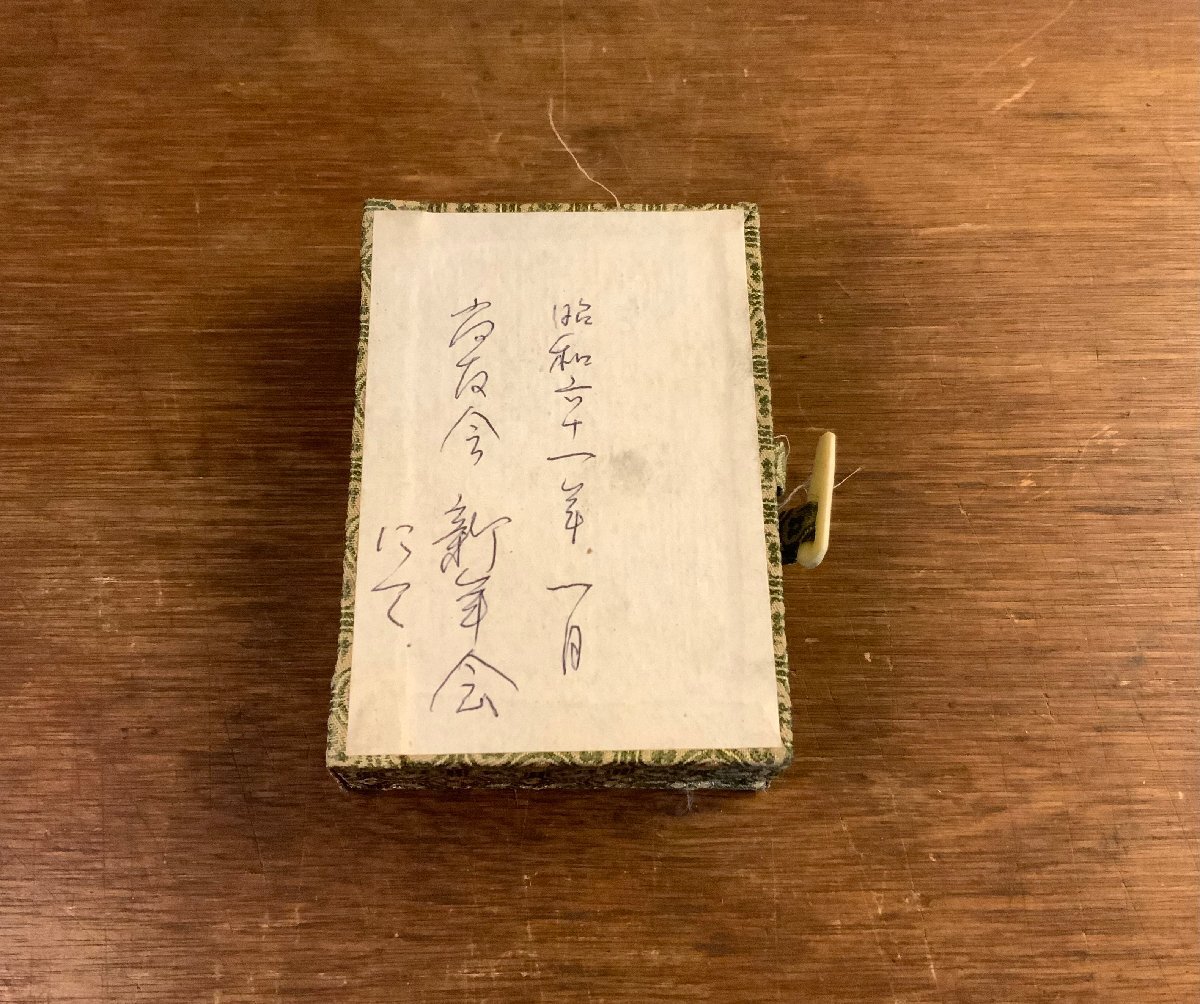 昭和六十一年 一月
尚友会 新年会
にて